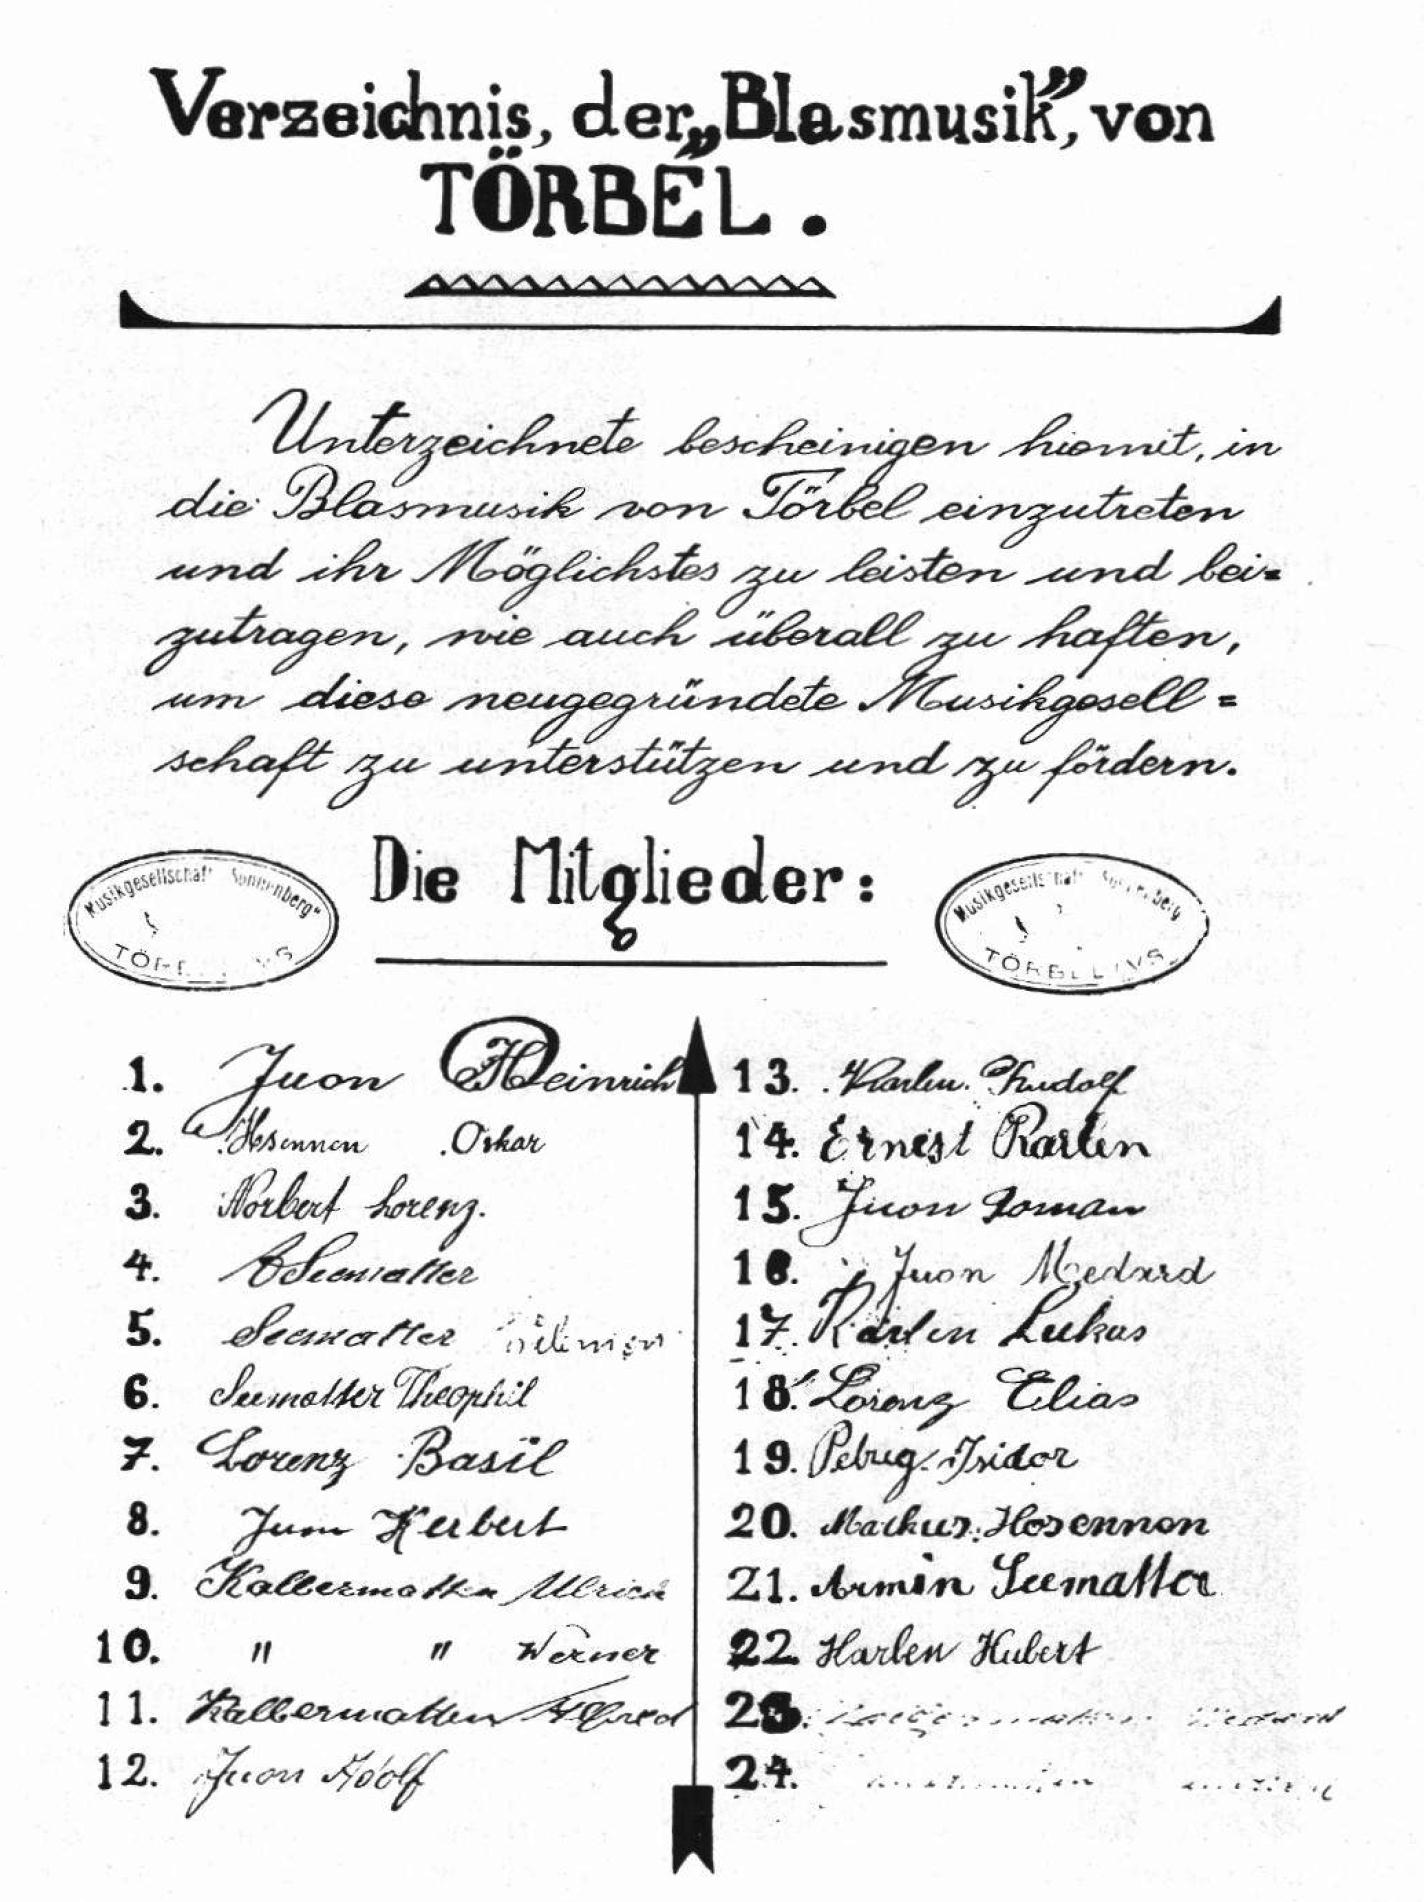 Verzeichnis, der „Blasmusik”, von
„TÖRBEL.
Unterzeichnete bescheinigen hiemit, in
die Blasmusik von Törbel einzutreten
und ihr Möglichstes zu leisten und bei=
zutragen, wie auch überall zu haften,
um diese neugegründete Musikgesell=
schaft zu unterstützen und zu fördern.
Die Mitglieder:
Musikgesellschaft Sonnenberg"
TÖRBEL / VS
Musikgesellschaft Sonnenberg
TÖRBEL / VS
1. Juon Heinrich
2. Hosennen Oskar
3. Norbert Lorenz.
4. Seematter
5. Seematter
6. Seematter Theophil
7. Lorenz Basil
8. Juon Herbert
9. Kalbermatten Ulrich
10. " " Werner
11. Kalbermatten Alfred
12. Juon Adolf
13. Karlen Rudolf
14. Ernest Karlen
15. Juon Roman
16. Juon Medard
17. Karlen Lukas
18. Lorenz Elias
19. Petrug Isidor
20. Markus Hosennen
21. Armin Seematter
22 Karlen Hubert
23.
24.